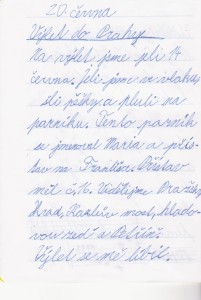 20. června
Výlet do Prahy
Na výlet jsme jeli 14
června. Jeli jsme ve vlaku,
šli pěšky a pluli na
parníku. Tento parník
se jmenoval Maria a přís-
tav na Františ. Přístav
měl č. 16. Viděli jsme Pražský
Hrad, Karlův most, hlado-
vou zeď a Petřín.
Výlet se mě líbil.